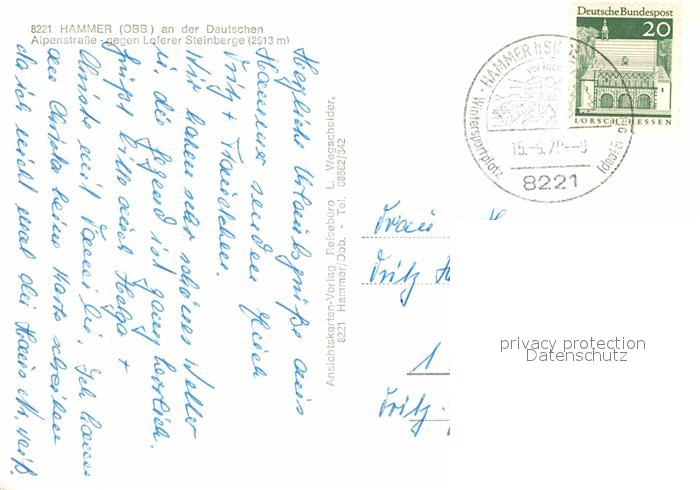 8221 HAMMER (OBB.) an der Deutschen
Alpenstraße - gegen Loferer Steinberge (2513 m)
Herzliche Urlaubsgrüße aus
Hammer senden Euch
Fritz + Frauchen.
Wir haben sehr schönes Wetter
u. die Gegend ist ganz herrlich.
Grüßt bitte auch Helga +
Familie. Ich kann
an Christa keine Karte schreiben
da ich nicht mal die Haus Nr. weiß.
Ansichtskarten-Verlag Reisebüro L. Wegscheider,
8221 Hammer/Obb. - Tel. 08662/342
Deutsche Bundespost
20
LORSCH/HESSEN
HAMMER b SIEGSD
Wintersportplatz
15.-9.70.--
8221
Frau H
Fritz H
1
Fritz-
privacy protection
Datenschutz